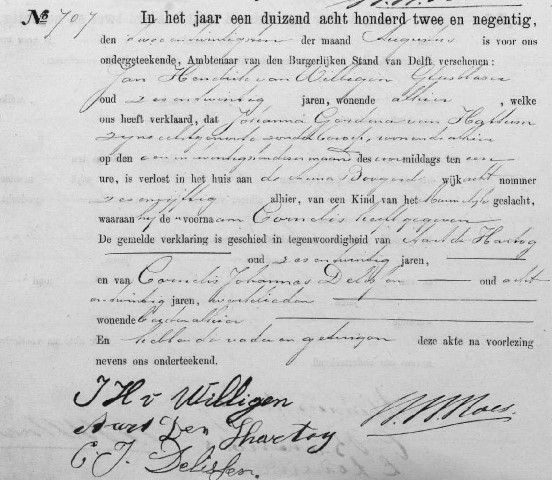 No 707
In het jaar een duizend acht honderd twee en negentig,
den twee en twintigsten der maand Augustus is voor ons
ondergeteekende, Ambtenaar van den Burgerlijken Stand van Delft, verschenen:
Jan Hendrik van Willigen
oud zes en twintig jaren, wonende alhier, welke
ons heeft verklaard, dat Johanna van
zijne echtgenoote zonder beroep, wonende alhier
op den een en twintigsten dezer maand des voormiddags ten een
ure, is verlost in het huis aan de wijk acht nommer
alhier, van een Kind van het mannelijke geslacht,
waaraan hij de voornaam Cornelis heeft gegeven
De gemelde verklaring is geschied in tegenwoordigheid van Aart den Hartog
oud zes en twintig jaren,
en van Cornelis Johannes Delissen oud acht
en twintig jaren, werklieden
wonende beiden alhier
En hebben de vader en getuigen deze akte na voorlezing
nevens ons onderteekend.
J H v Willigen
Aart Den Hartog
C. J. Delissen.